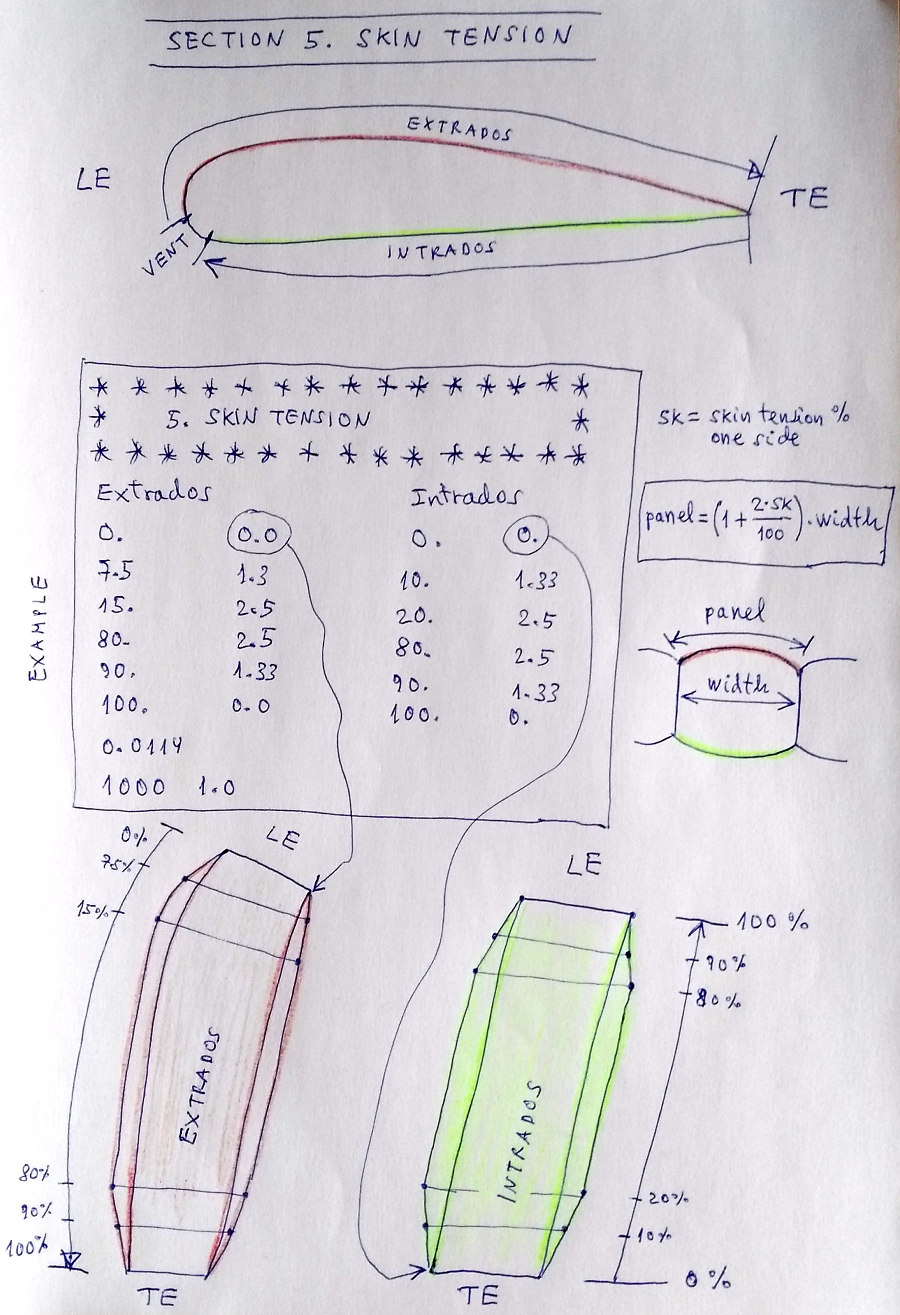 SECTION 5. SKIN TENSION
EXTRADOS
LE
TE
VENT
INTRADOS
* * * * * * * * * * * * * * *
* 5. SKIN TENSION *
* * * * * * * * * * * * * * *
Extrados Intrados
0. 0.0 0. 0.
7.5 1.3 10. 1.33
15. 2.5 20. 2.5
80. 2.5 80. 2.5
90. 1.33 90. 1.33
100. 0.0 100. 0.
0.0114
1000 1.0
EXAMPLE
SK = skin tension %
one side
panel = (1 + 2·SK/100) · width
panel
width
0%
LE
75%
15%
EXTRADOS
80%
90%
100%
TE
LE
100%
90%
80%
INTRADOS
20%
10%
0%
TE